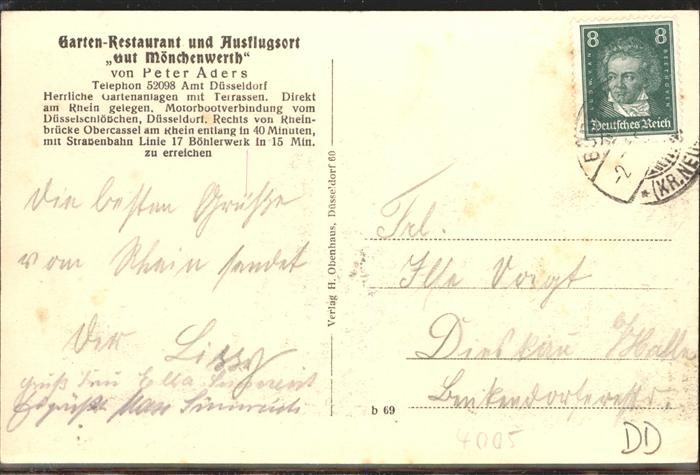 Garten-Restaurant und Ausflugsort
„Gut Mönchenwerth“
von Peter Aders
Telephon 52098 Amt Düsseldorf
Herrliche Gartenanlagen mit Terrassen. Direkt
am Rhein gelegen. Motorbootverbindung vom
Düsselschlößchen, Düsseldorf. Rechts von Rhein-
brücke Obercassel am Rhein entlang in 40 Minuten,
mit Straßenbahn Linie 17 Böhlerwerk in 15 Min.
zu erreichen
Die besten Grüße
vom Rhein sendet
Der
Ella
Max
Verlag H. Obenhaus, Düsseldorf 60
b 69
8 8
LUDW. VAN BEETHOVEN
Deutsches Reich
(KR. NEU
Frl.
Ilse Voigt
Dieskau b/Halle
Benkendorferstr.
4005
DD